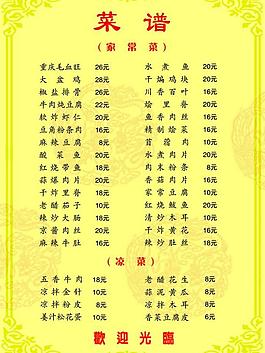 菜谱
(家常菜)
重庆毛血旺 26元 水煮鱼 20元
大盆鸡 28元 干煸鸡块 20元
椒盐排骨 26元 川香百叶 16元
牛肉炖豆腐 22元 烩里脊 20元
软炸虾仁 20元 鱼香肉丝 16元
豆角粉条肉 16元 精制烩菜 16元
麻辣豆腐 8元 首蓿肉 10元
酸菜鱼 20元 水煮肉片 20元
红烧带鱼 18元 肉末粉条 8元
蒜爆肉片 20元 香菇肉片 16元
干炸里脊 18元 家常豆腐 10元
老醋茄子 10元 红烧鲤鱼 20元
辣炒大肠 18元 清炒木耳 10元
京酱肉丝 20元 干炸黄花 16元
麻辣牛肚 16元 辣炒肚丝 18元
(凉菜)
五香牛肉 18元 老醋花生 8元
凉拌金针 10元 蒜泥黄瓜 8元
凉拌粉皮 8元 凉拌木耳 8元
姜汁松花蛋 10元 香菜豆腐皮 6元
歡迎光臨